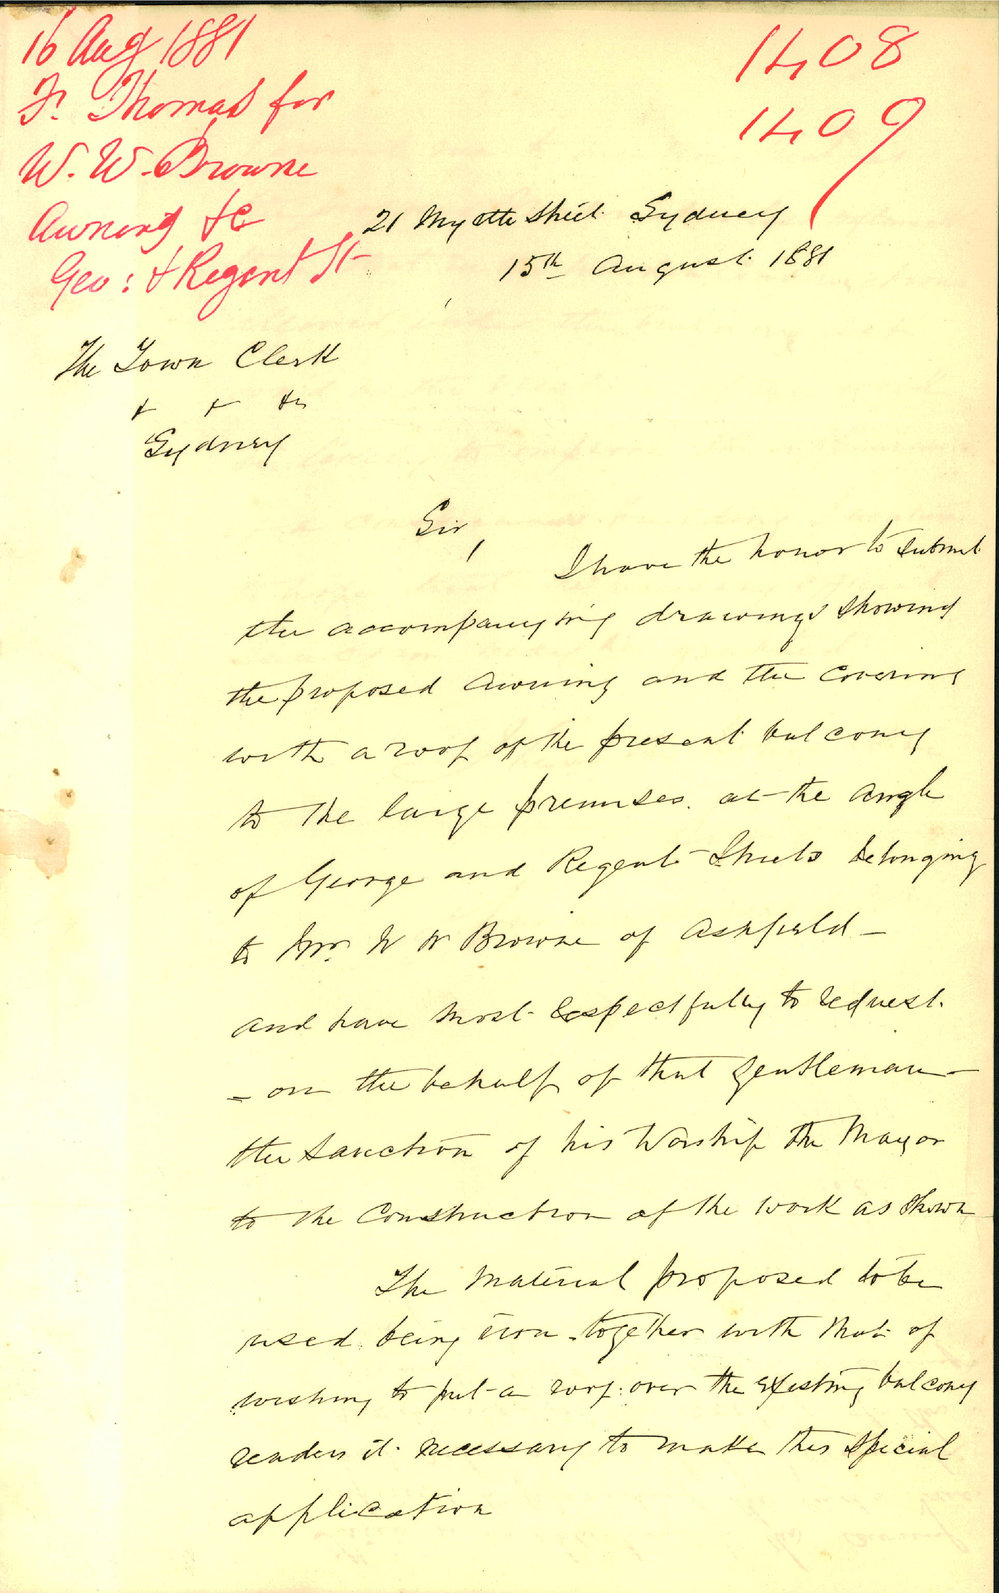 16 Aug 1881
F. Thomas for
W. W. Browne
Awning &c
Geo: & Regent St
1408
1409
21 Myrtle Street Sydney
15th August 1881
The Town Clerk
& & &c
Sydney
Sir,
I have the honor to submit
the accompanying drawings showing
the proposed Awning and the covering
with a roof of the present balcony
to the large premises at the angle
of George and Regent Streets belonging
to Mr. W W Browne of Ashfield -
and have most respectfully to request
- on the behalf of that gentleman -
the sanction of his Worship the Mayor
to the construction of the work as shown
The material proposed to be
used being iron together with that of
wishing to put a roof over the existing balcony
renders it necessary to make this special
application